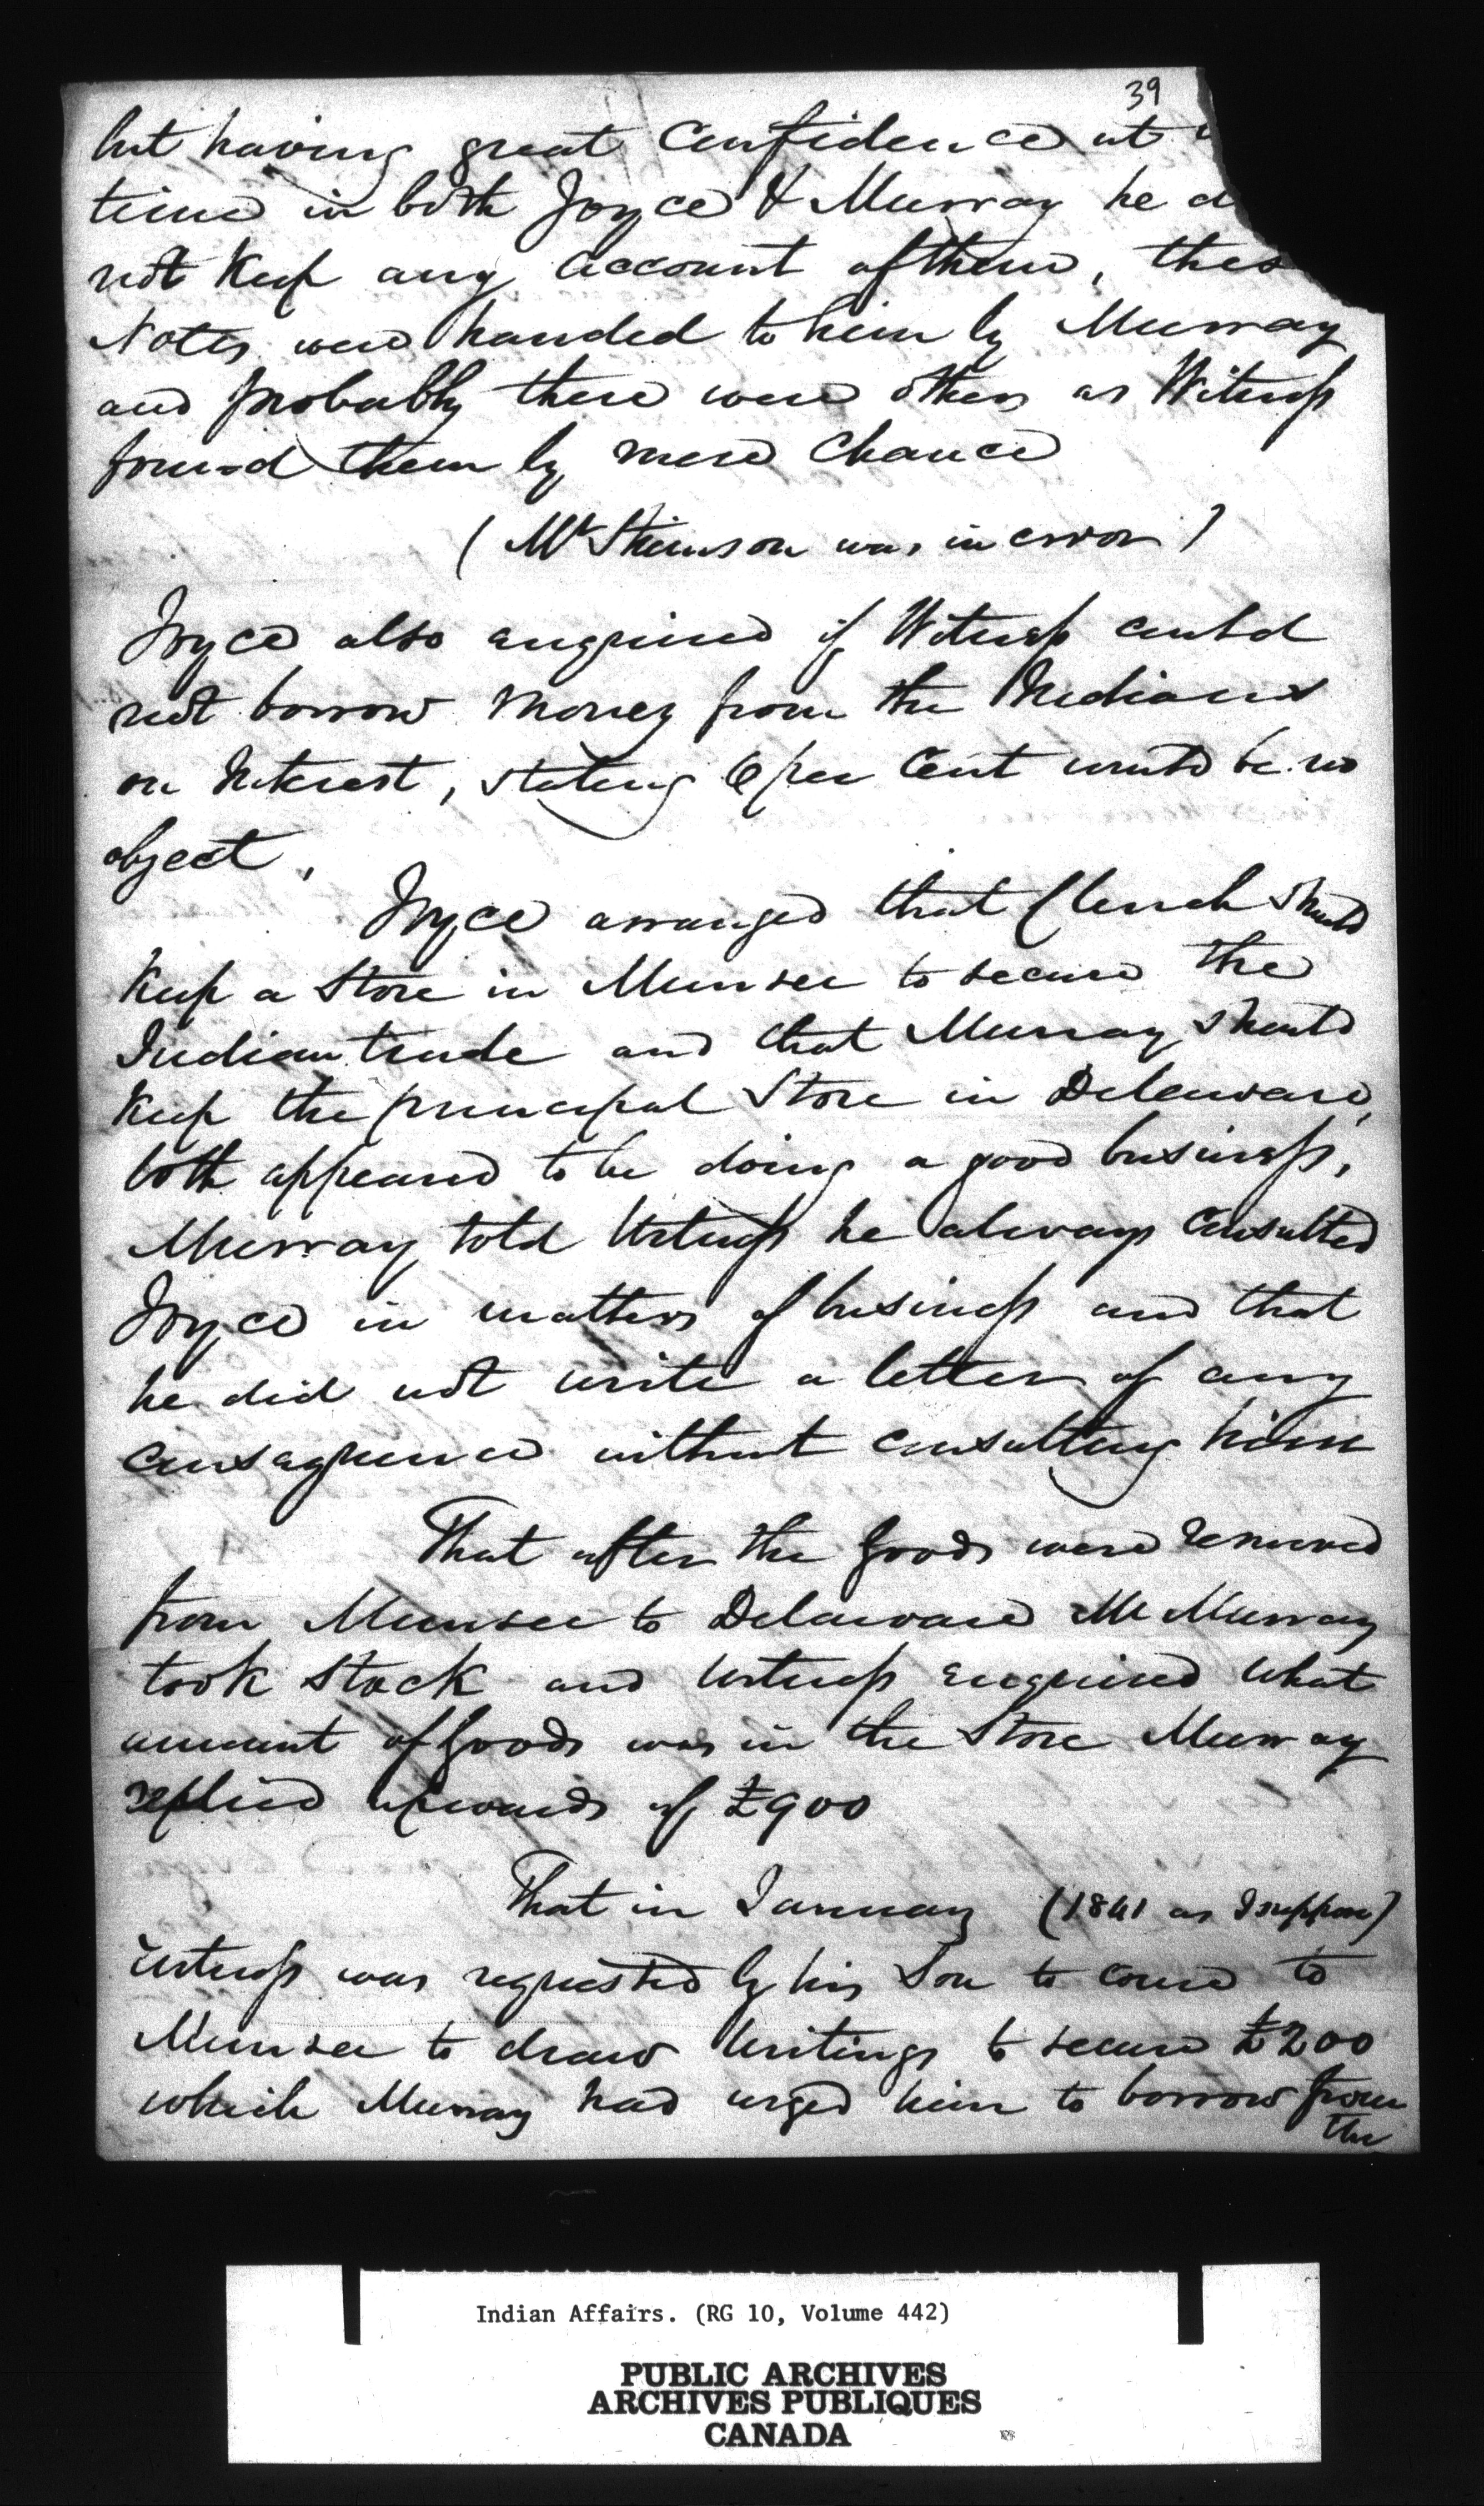 39
but having great Confidence at
time in both Joyce & Murray he d
not Keep any account of them, thes
Notes were handed to him by Murray
and probably there were others as Witness
found them by mere Chance
(Mr Stimson was in error)
Joyce also enquired if Witness could
not borrow Money from the Indians
on Interest, stating 6 per Cent would be no
object.
Joyce arranged that Clench should
Keep a Store in Munsee to secure the
Indian trade and that Murray should
Keep the principal Store in Delaware,
both appeared to be doing a good business,
Murray told Witness he always Consulted
Joyce in matters of business and that
he did not write a letter of any
consequence without consulting him
That after the Goods were removed
from Munsee to Delaware Mr Murray
took Stock and Witness enquired what
amount of Goods was in the Store Murray
replied upwards of £900
That in January (1841 as I suppose)
Witness was requested by his Son to come to
Munsee to draw Writings to secure £200
which Murray had urged him to borrow from
the
Indian Affairs. (RG 10, Volume 442)
PUBLIC ARCHIVES
ARCHIVES PUBLIQUES
CANADA